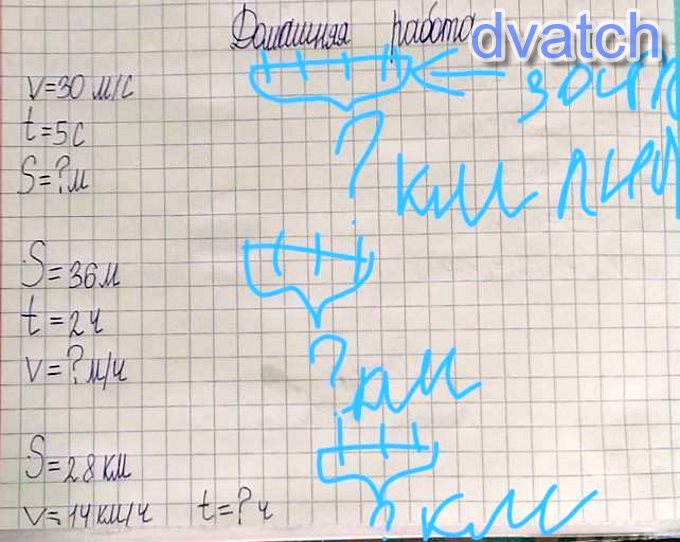 Домашняя работа dvatch
V=30 м/с
t=5с
S=?м
?
км
S=36м
t=2ч
V=?м/ч
?км
S=28км
V=14км/ч t=?ч
?км